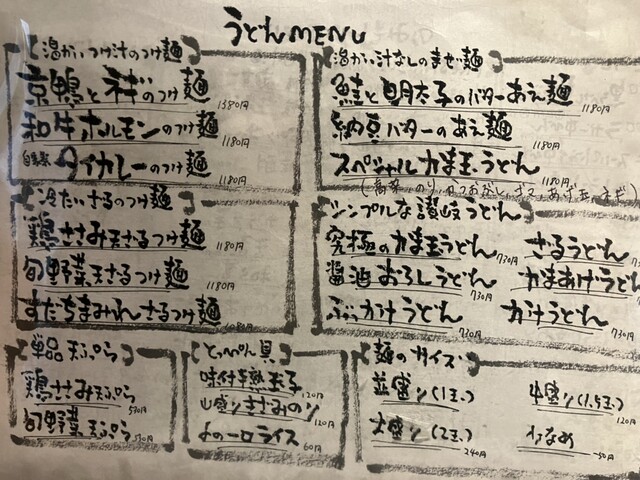 うどんMENU
温かいつけ汁のつけ麺
京鴨とネギのつけ麺 1380円
和牛ホルモンのつけ麺 1180円
自家製 タイカレーのつけ麺 1180円
温かい汁なしのまぜ麺
鮭と明太子のバターあえ麺 1180円
納豆バターのあえ麺 1180円
スペシャルかま玉うどん 1180円
冷たいざるのつけ麺
鶏ささみ天ざるつけ麺 1180円
旬野菜天ざるつけ麺 1180円
すだちまみれざるつけ麺 1080円
シンプルな讃岐うどん
究極のかま玉うどん 730円
ざるうどん 73
醤油おろしうどん 730円
かまあげうどん 73
ぶっかけうどん 730円
かけうどん 73
単品天ぷら
鶏ささみ天ぷら 530円
旬野菜天ぷら 530円
とっぺん具
味付半熟玉子 120円
山盛りきざみのり 120円
よの一口ライス 60円
麺のサイズ
並盛り(1玉)
中盛り(1.5玉) 120円
大盛り(2玉) 240円
少なめ -50円